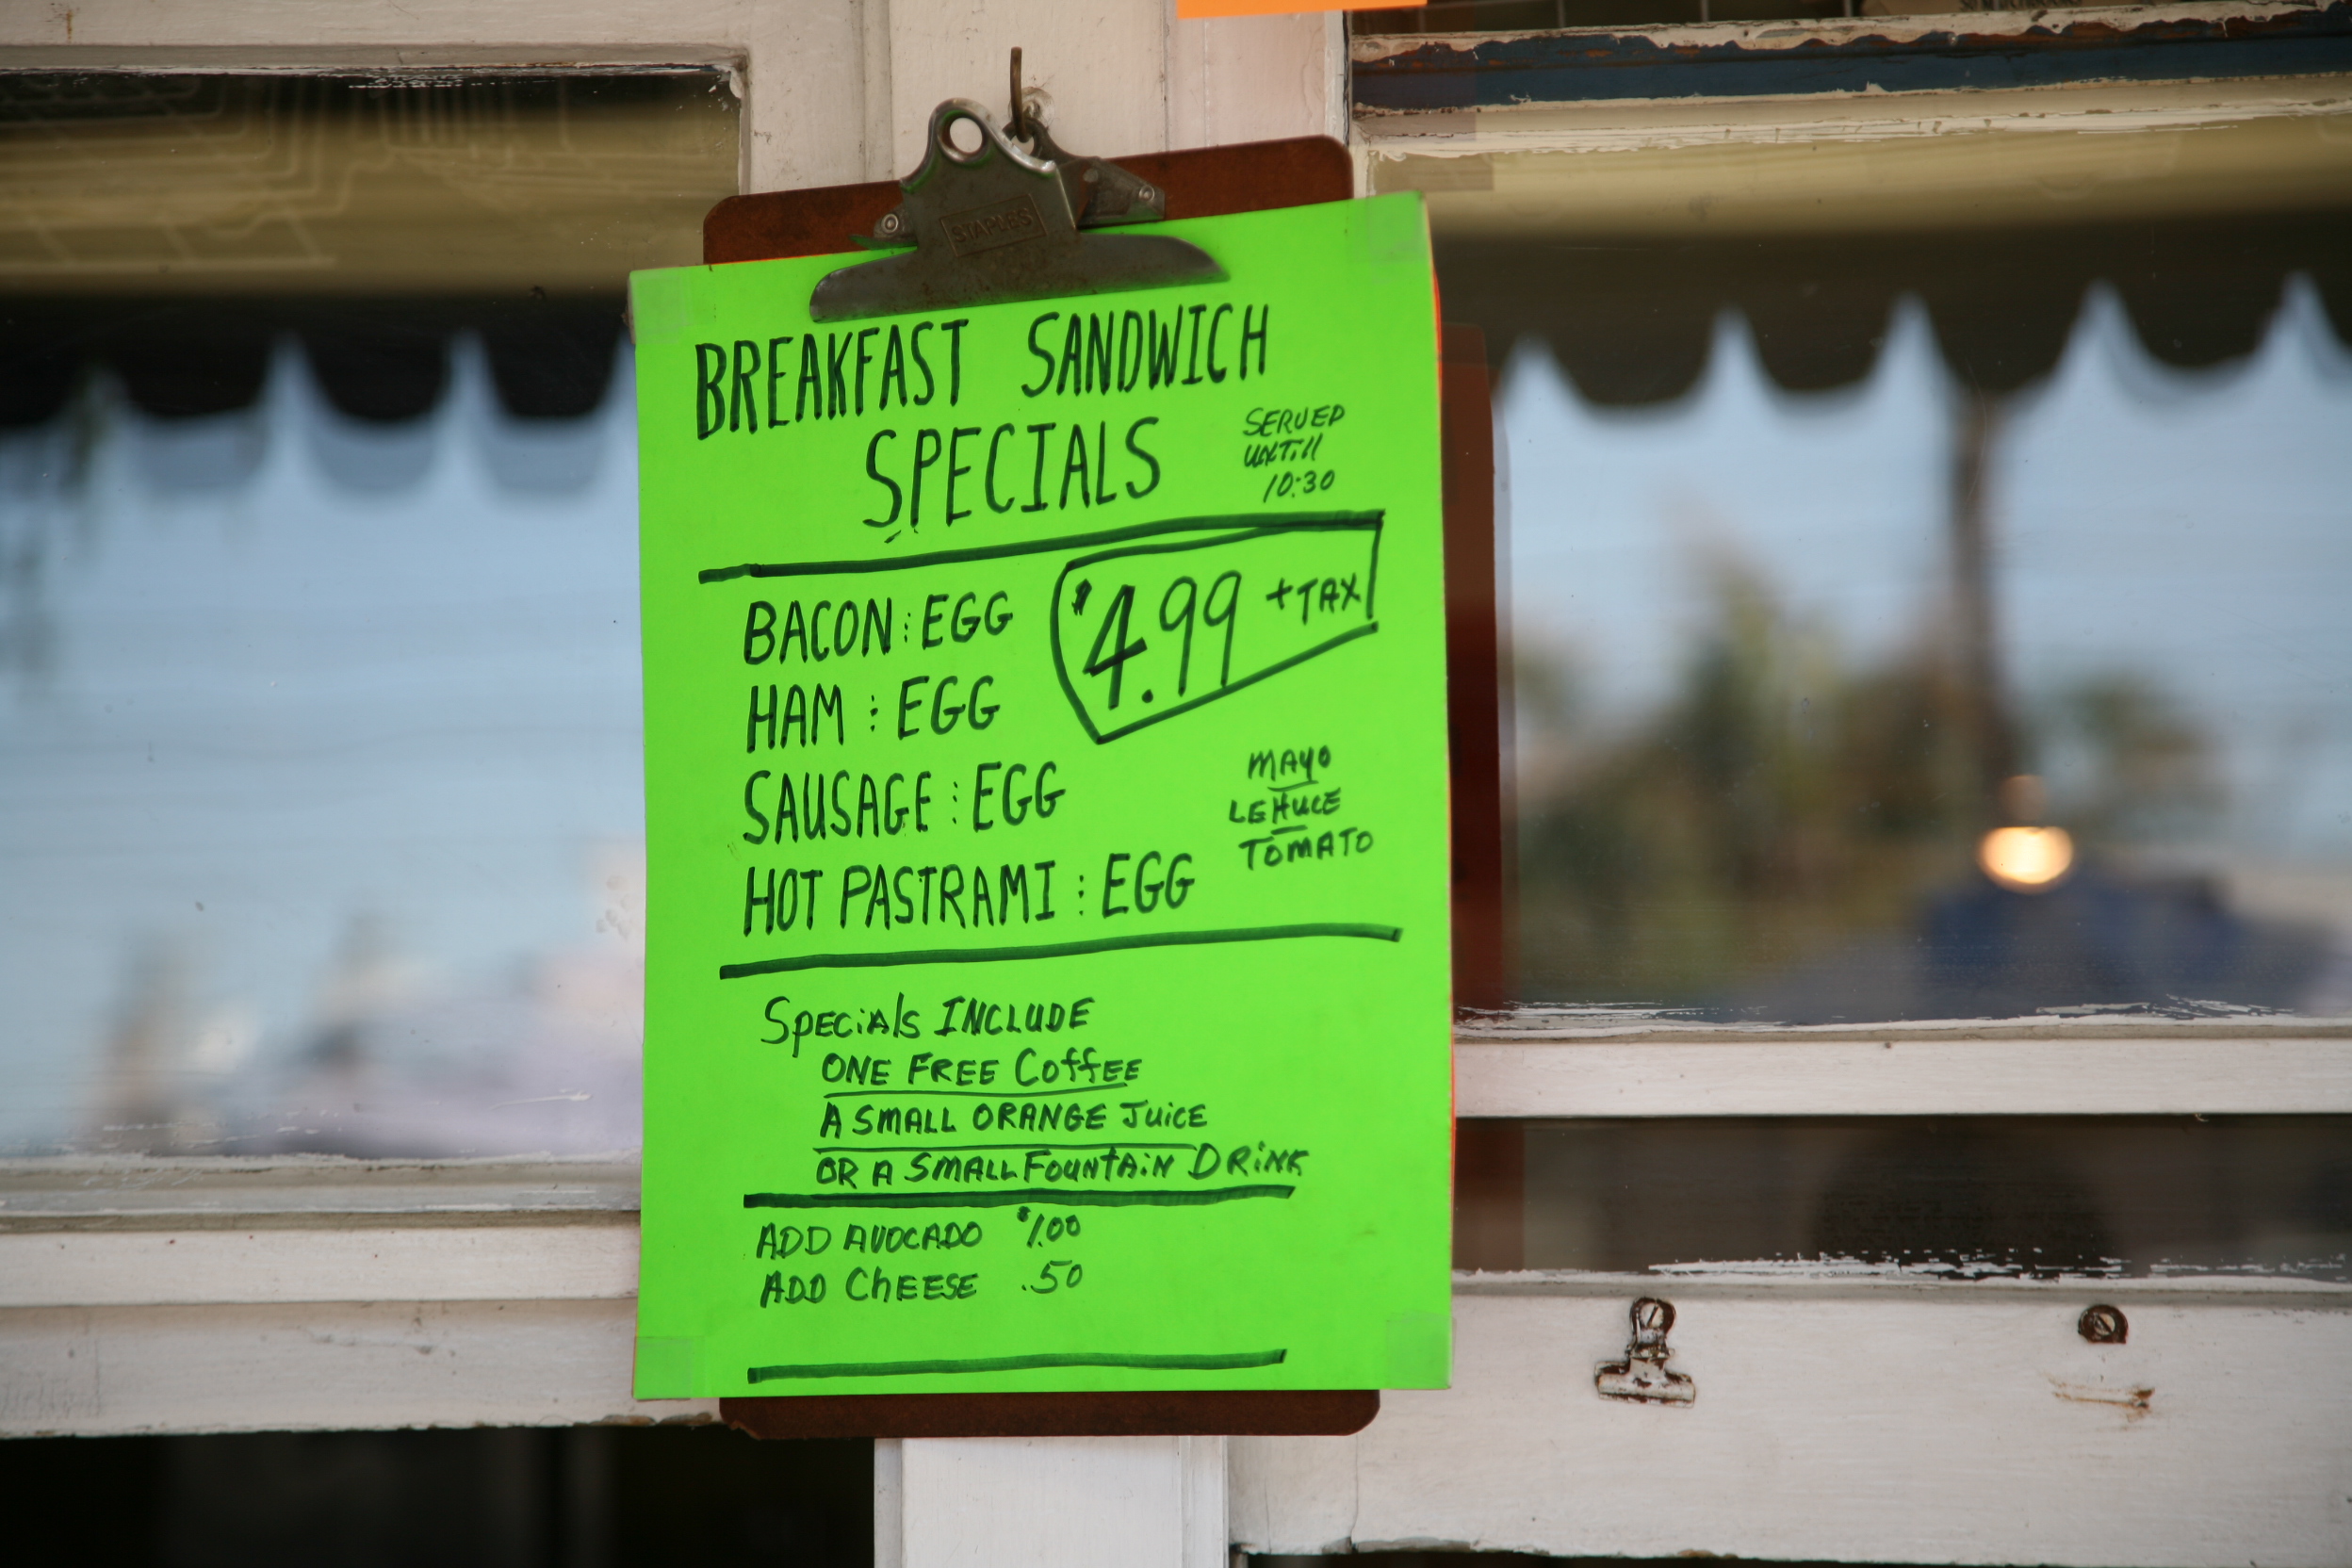 STAPLES
BREAKFAST SANDWICH
SPECIALS
SERVED
UNTill
10:30
BACON : EGG
$4.99 +TAX
HAM : EGG
SAUSAGE : EGG
MAYO
LETTUCE
TOMATO
HOT PASTRAMI : EGG
SpECiAls INCLUDE
ONE FREE CoffEE
A SMALL ORANGE JuicE
OR A SMALL FOUNtAiN DRiNK
ADD AVOCADO $1.00
ADD ChEESE .50